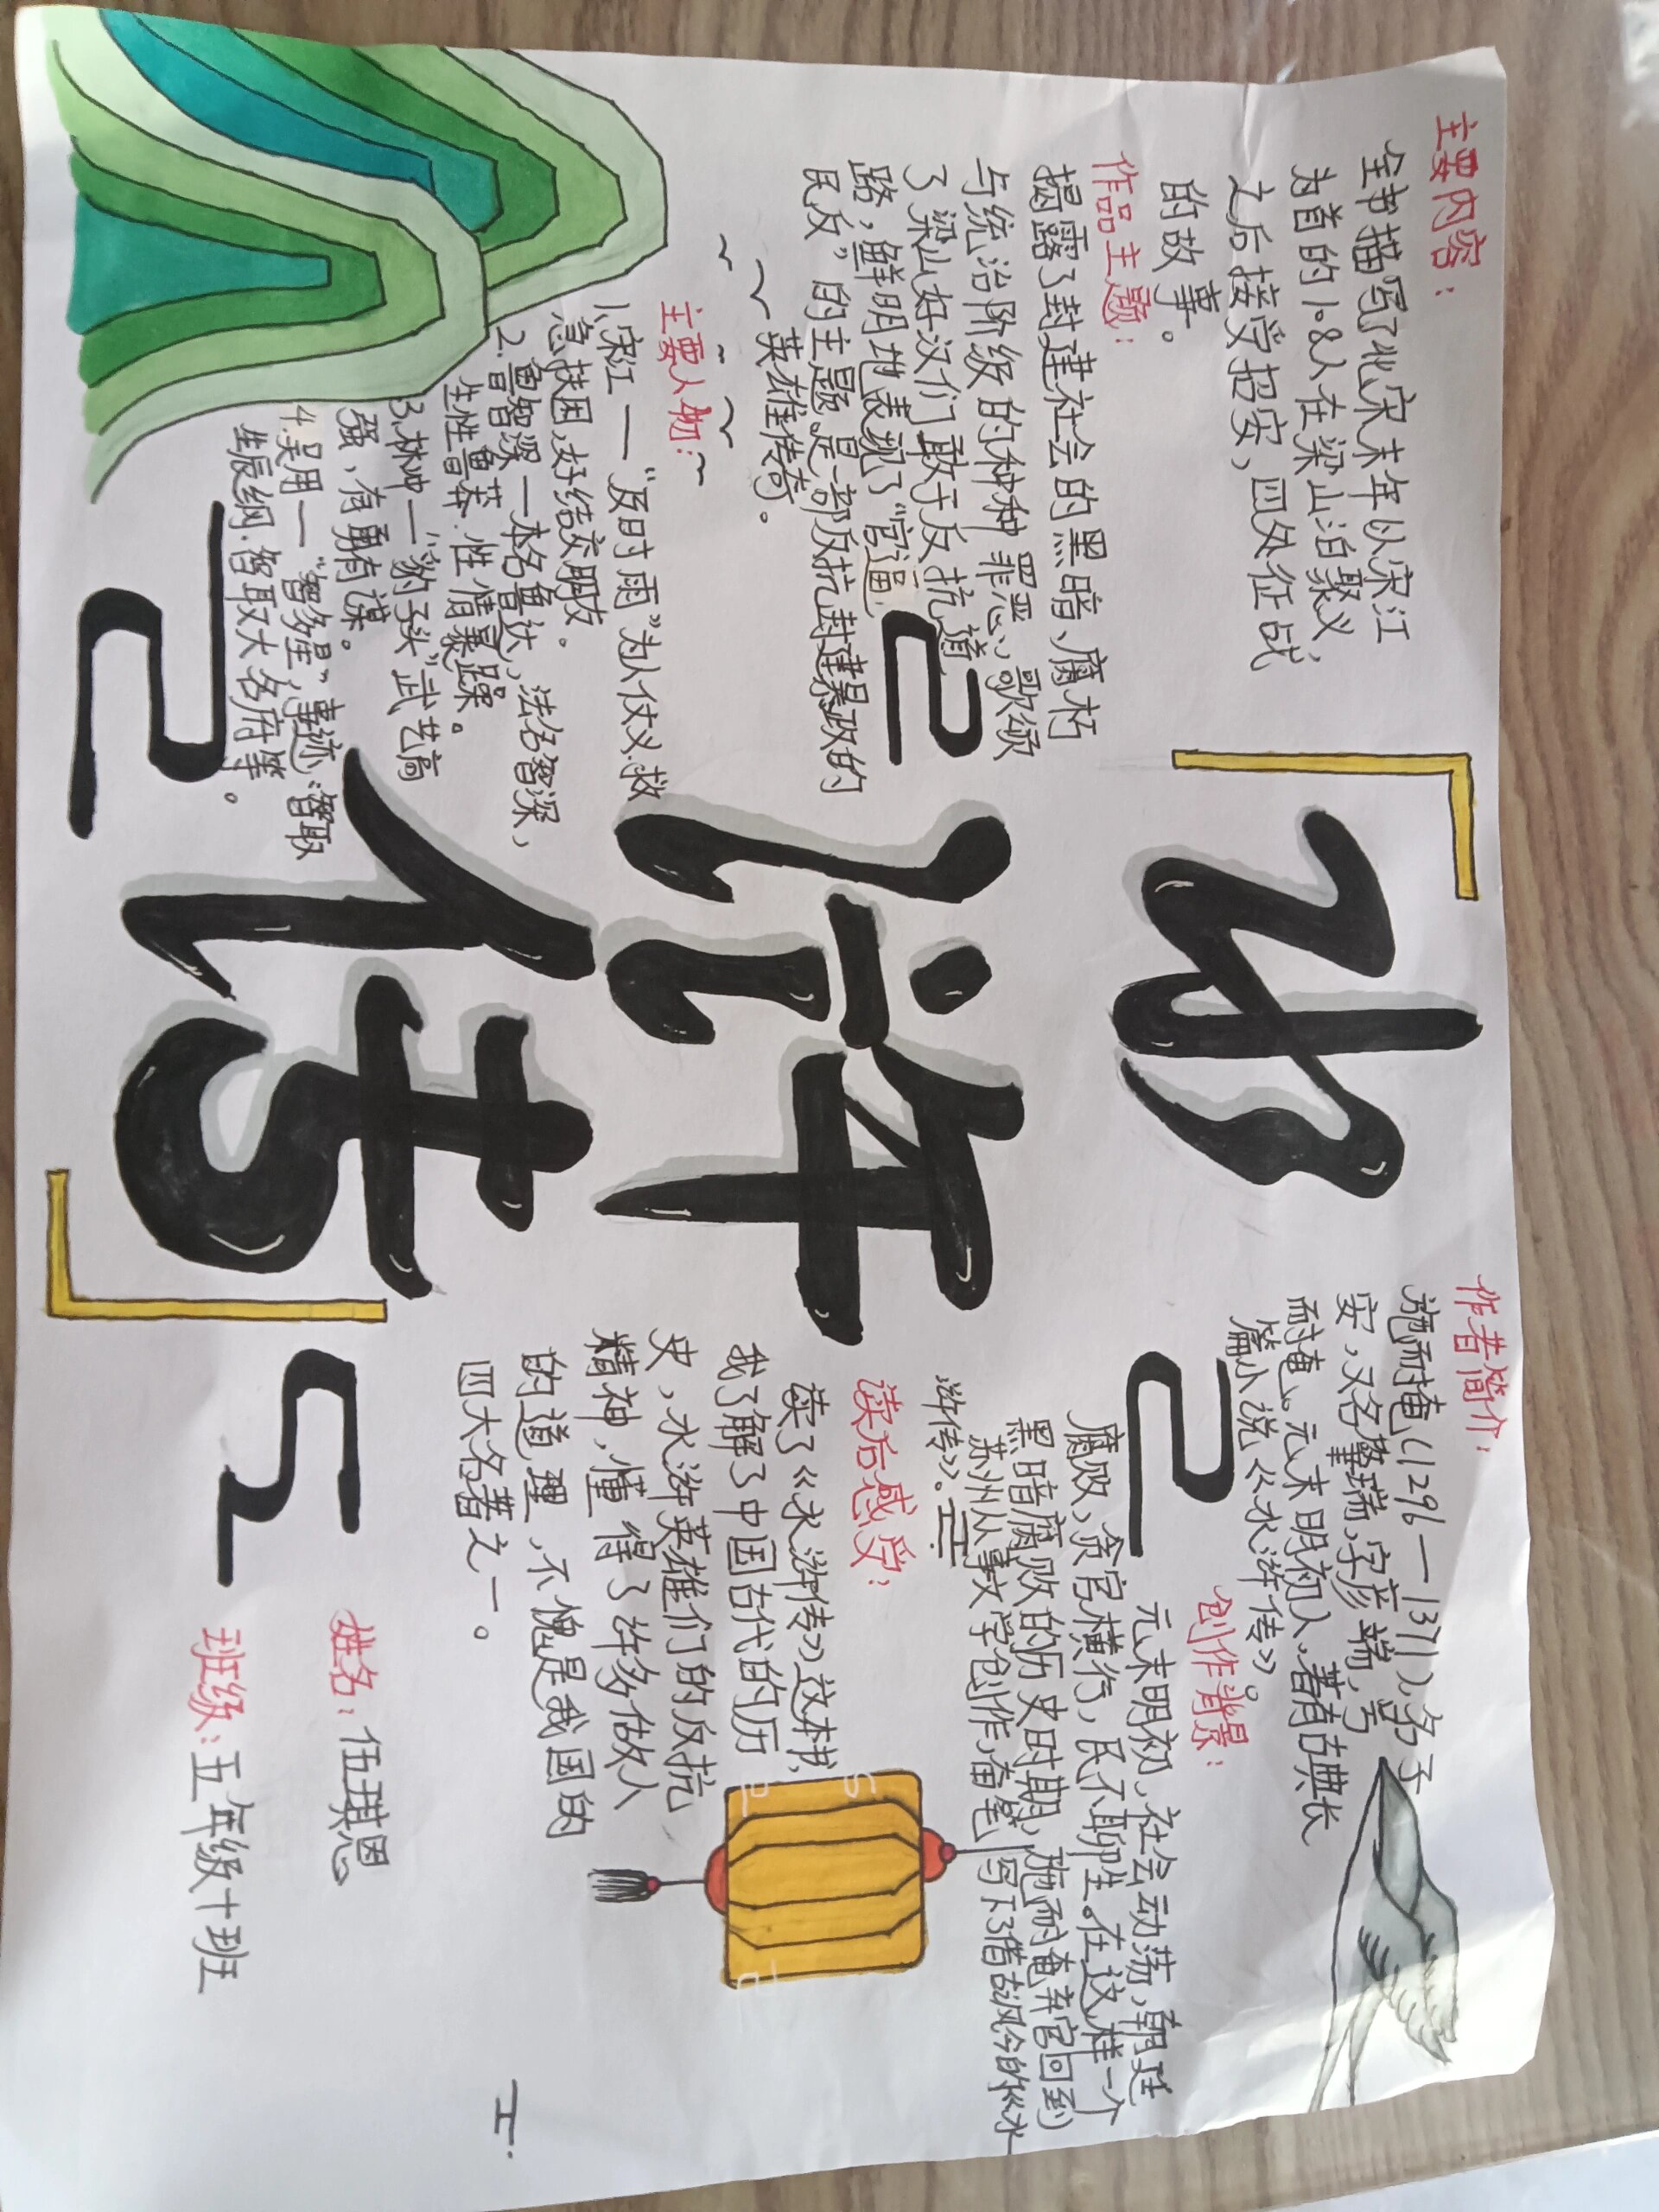 水浒传
主要内容：
全书描写了北宋末年以宋江
为首的108人在梁山泊聚义，
之后接受招安，四处征战
的故事。
作品主题：
揭露了封建社会的黑暗、腐朽
与统治阶级的种种罪恶，歌颂
了梁山好汉们敢于反抗道
路，鲜明地表现了“官逼
民反”的主题，是一部反抗封建暴政的
英雄传奇。
主要人物：
1.宋江—“及时雨”为人仗义.救
急扶困,好结交朋友。
2.鲁智深—本名鲁达，法名智深，
生性鲁莽.性情暴躁。
3.林冲—“豹子头”武艺高
强，有勇有谋。
4.吴用—“智多星”，事迹：智取
生辰纲.智取大名府等。
作者简介：
施耐庵(1296—1371),名子
安，又名肇瑞，字彦端，号
耐庵。元末明初人。著有古典长
篇小说《水浒传》。
创作背景：
元末明初，社会动荡，朝廷
腐败，贪官横行，民不聊生。在这样一个
黑暗腐败的历史时期，施耐庵弃官回到
苏州从事文学创作，奋笔写下了借古讽今的《水
浒传》。
读后感受：
读了《水浒传》这本书，
我了解了中国古代的历
史，水浒英雄们的反抗
精神，懂得了许多做人
的道理，不愧是我国的
四大名著之一。
姓名：伍琪恩
班级：五年级十班